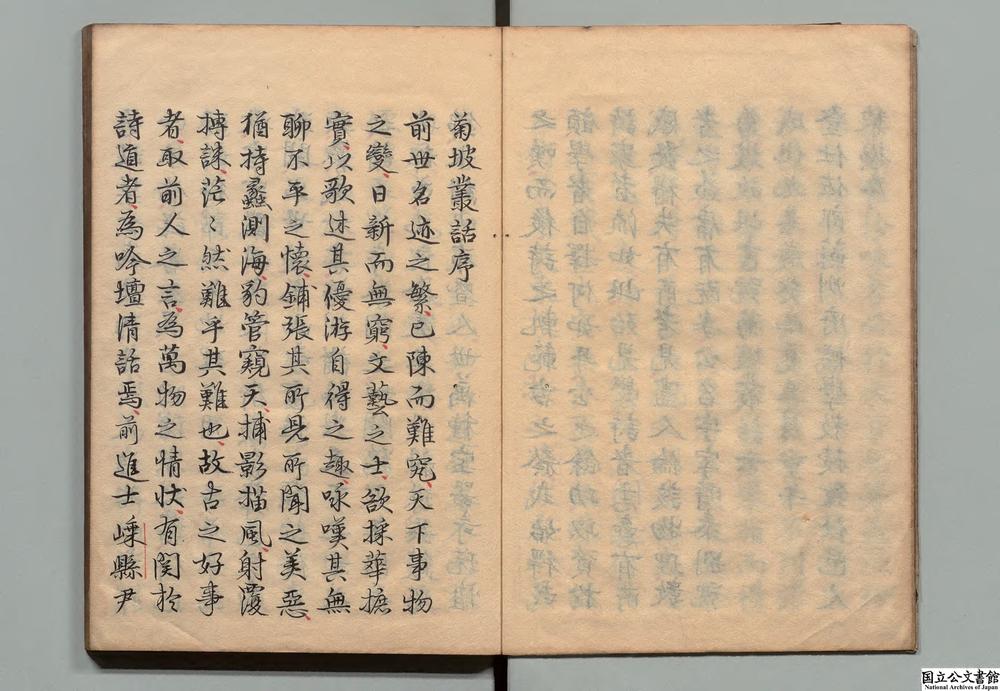 菊坡叢話序
前世名迹之繁已陳而難究天下事物
之變日新而無窮文藝之士欲採華摭
實以歌述其優游自得之趣咏嘆其無
聊不平之懷鋪張其所見所聞之美惡
猶持蠡測海豹管窺天捕影描風射覆
摶誅茫〻然難乎其難也故古之好事
者取前人之言為萬物之情狀有関於
詩道者為吟壇清話焉前進士嵊縣尹
国立公文書館
National Archives of Japan